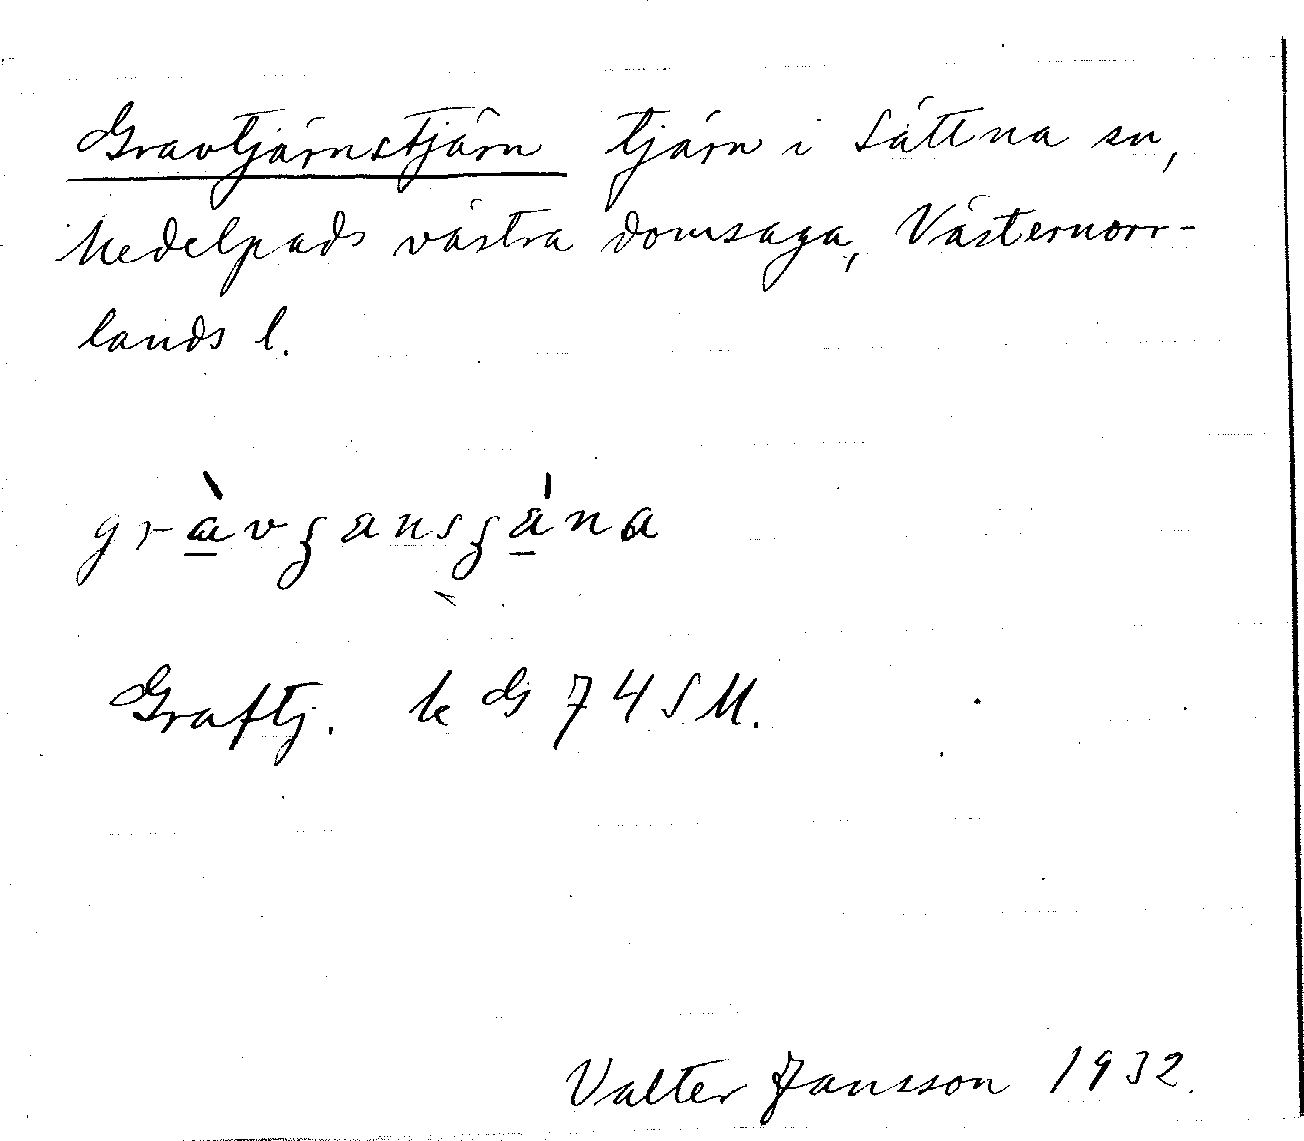 Gravtjärnstjärn tjärn i Sättna sn,
Medelpads västra domsaga, Västernorr-
lands l.
Graftj. k G 74 SM.
Valter Jansson 1932.